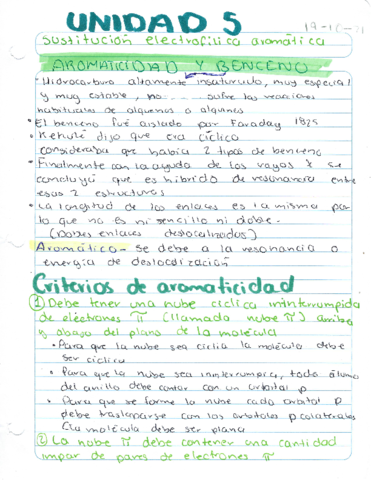 UNIDAD 5
Sustitución electrofílica aromática
AROMATICIDAD Y BENCENO
- Hidrocarburo altamente insaturado, muy especial
y muy estable, no sufre las reacciones
habituales de alquenos o alquinos
• El benceno fué aislado por Faraday 1825
• Kekulé dijo que era cíclico
consideraba que había 2 tipos de benceno
• Finalmente con la ayuda de los rayos X se
concluyó que es híbrido de resonancia entre
esas 2 estructuras
• La longitud de los enlaces es la misma por
lo que no es ni sencillo ni doble.
(Dobles enlaces deslocalizados)
Aromático - Se debe a la resonancia o
energía de deslocalización
Criterios de aromaticidad
① Debe tener una nube cíclica ininterrumpida
de eléctrones π (llamada nube π) arriba
y abajo del plano de la molécula
• Para que la nube sea ciclia la molécula debe
ser cíclica
• Para que la nube sea ininterrumpida, todo átomo
del anillo debe contar con un orbital p
• Para que se forme la nube cada orbital p
debe traslaparse con los orbitales p colaterales
(La molécula debe ser plana
② La nube π debe contener una cantidad
impar de pares de electrones π